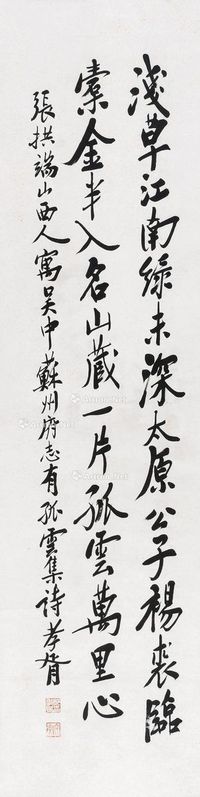 淺草江南綠未深太原公子裼裘臨
橐金半入名山藏一片孤雲萬里心
張拱端山西人寓吳中蘇州府志有孤雲集詩 孝胥